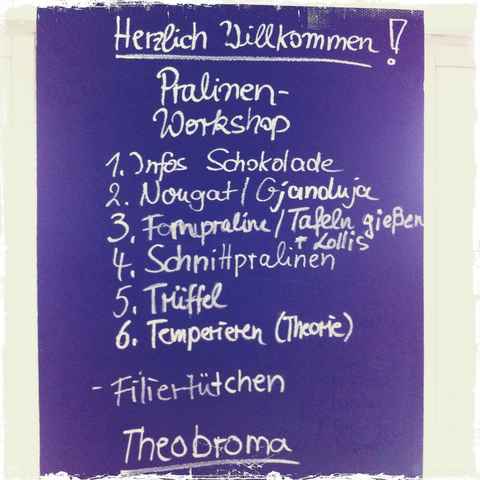 Herzlich Willkommen!
Pralinen-
Workshop
1. Infos Schokolade
2. Nougat / Gianduja
3. Formpraline / Tafeln gießen
+ Lollis
4. Schnittpralinen
5. Trüffel
6. Temperieren (Theorie)
- Filiertütchen
Theobroma